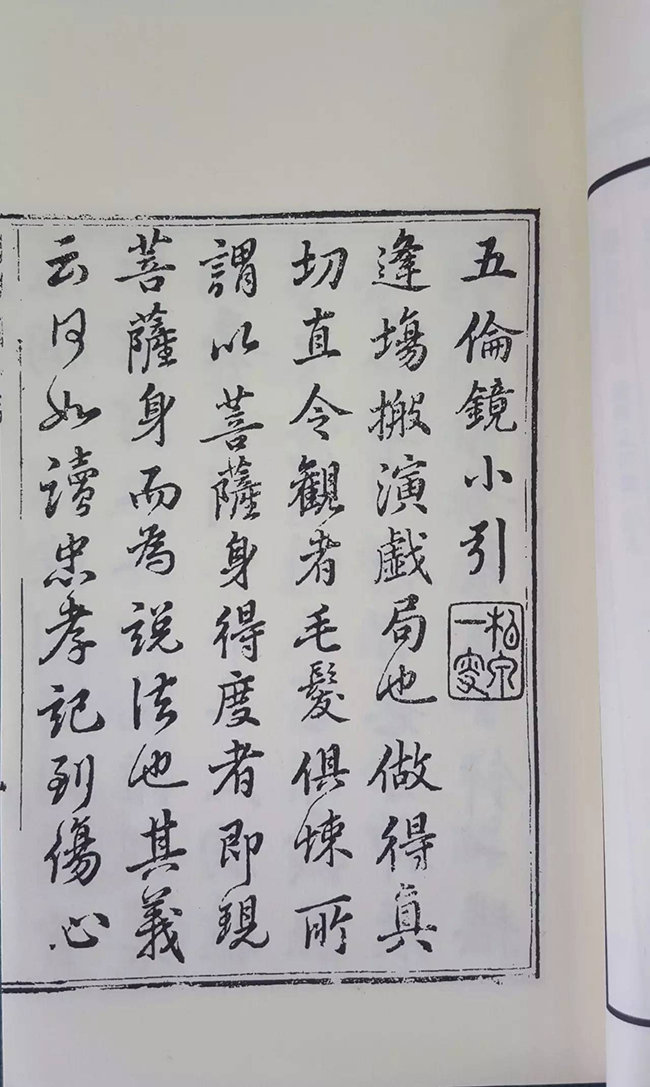 五倫鏡小引
逢塲搬演戲局也做得真
切直令觀者毛髮俱悚所
謂以菩薩身得度者即現
菩薩身而為説法也其義
云何如讀忠孝記到傷心